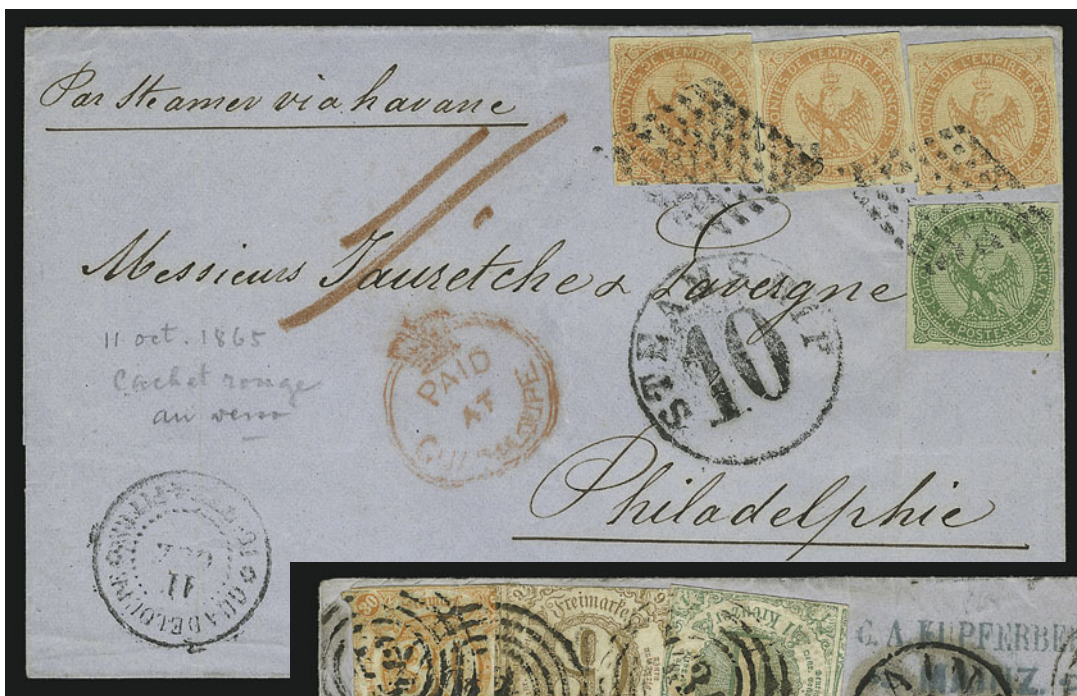 Par Steamer via havane
COLONIES DE L'EMPIRE FRANÇAIS
COLONIES DE L'EMPIRE FRANÇAIS
COLONIES DE L'EMPIRE FRANÇAIS
COLONIES DE L'EMPIRE FRANÇAIS
5 C. POSTES 5 C.
Messieurs Tauretche & Lavergne
STEAMSHIP
10
11 oct. 1865
Cachet rouge
au verso
PAID
AT
GUADELOUPE
Philadelphie
GUADELOUPE
11
Freimarke
1 Kreuzer
C. A. KUPFERBE